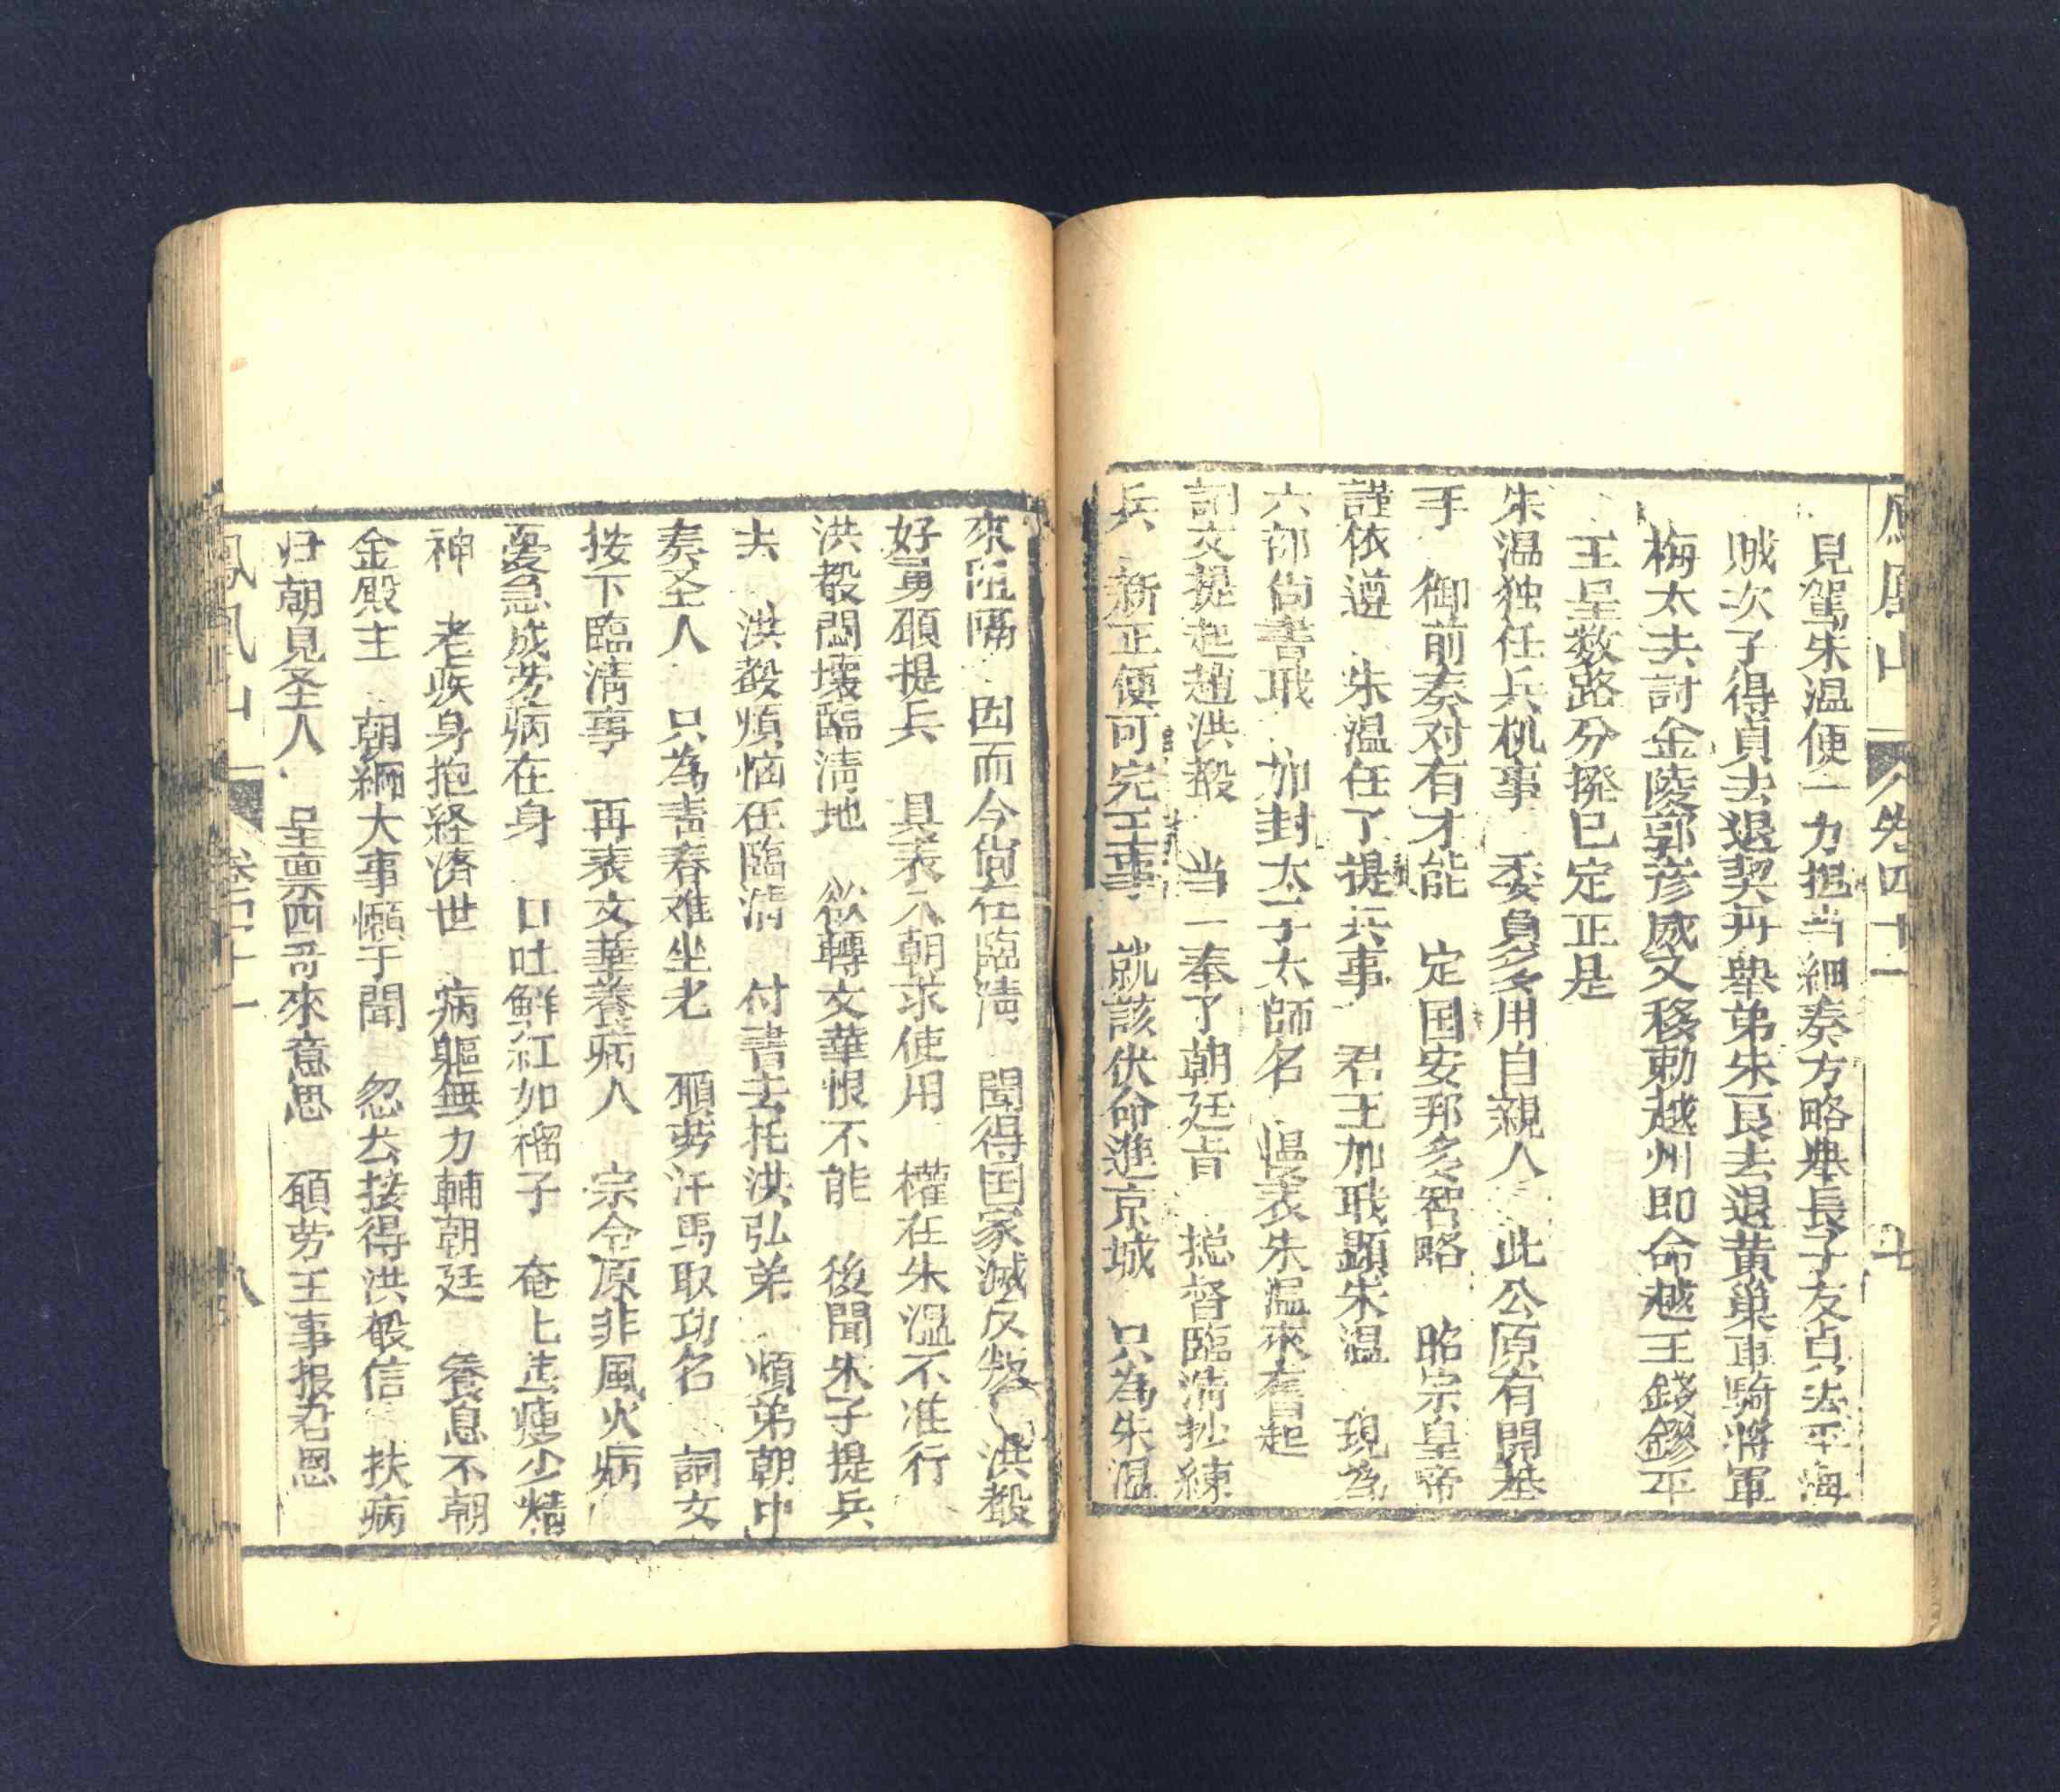 鳳凰山 卷四十一 七
見駕朱温便一力担当細奏方略舉長子友貞去平海
賊次子得貞去退契丹舉弟朱艮去退黄巢車騎將軍
梅太夫討金陵郭彦威文移勅越州即命越王錢鏐平
王呈数路分撥已定正是
朱温独任兵机事 委負多多用自親人 此公原有開基
手 御前奏对有才能 定国安邦多智略 昭宗皇帝
謹依遵 朱温任了提兵事 君王加职顕朱温 現為
六部尚書职 加封太子太師名 慢表朱温來者起
詞文提起趙洪毅 当一奉了朝廷旨 搃督臨清抄練
兵 新正便可完王事 就該伏命進京城 只為朱温
來阻隔 因而今尚在臨清 聞得国家滅反叛 洪毅
好勇願提兵 具表入朝求使用 權在朱温不准行
洪毅悶壞臨清地 欲轉文華恨不能 後聞朱子提兵
去 洪毅煩惱在臨清 付書去托洪弘弟 煩弟朝中
奏圣人 只為青春难坐老 願劳汗馬取功名 詞文
按下臨清事 再表文華養病人 宗令原非風火病
憂急成劳病在身 口吐鮮紅如榴子 奄上志痩少精
神 老疾身抱経済世 病軀無力輔朝廷 養息不朝
金殿主 朝綱大事懶于聞 忽去接得洪毅信 扶病
归朝見圣人 呈禀四哥來意思 碩劳王事报君恩
鳳凰山 卷四十一 八